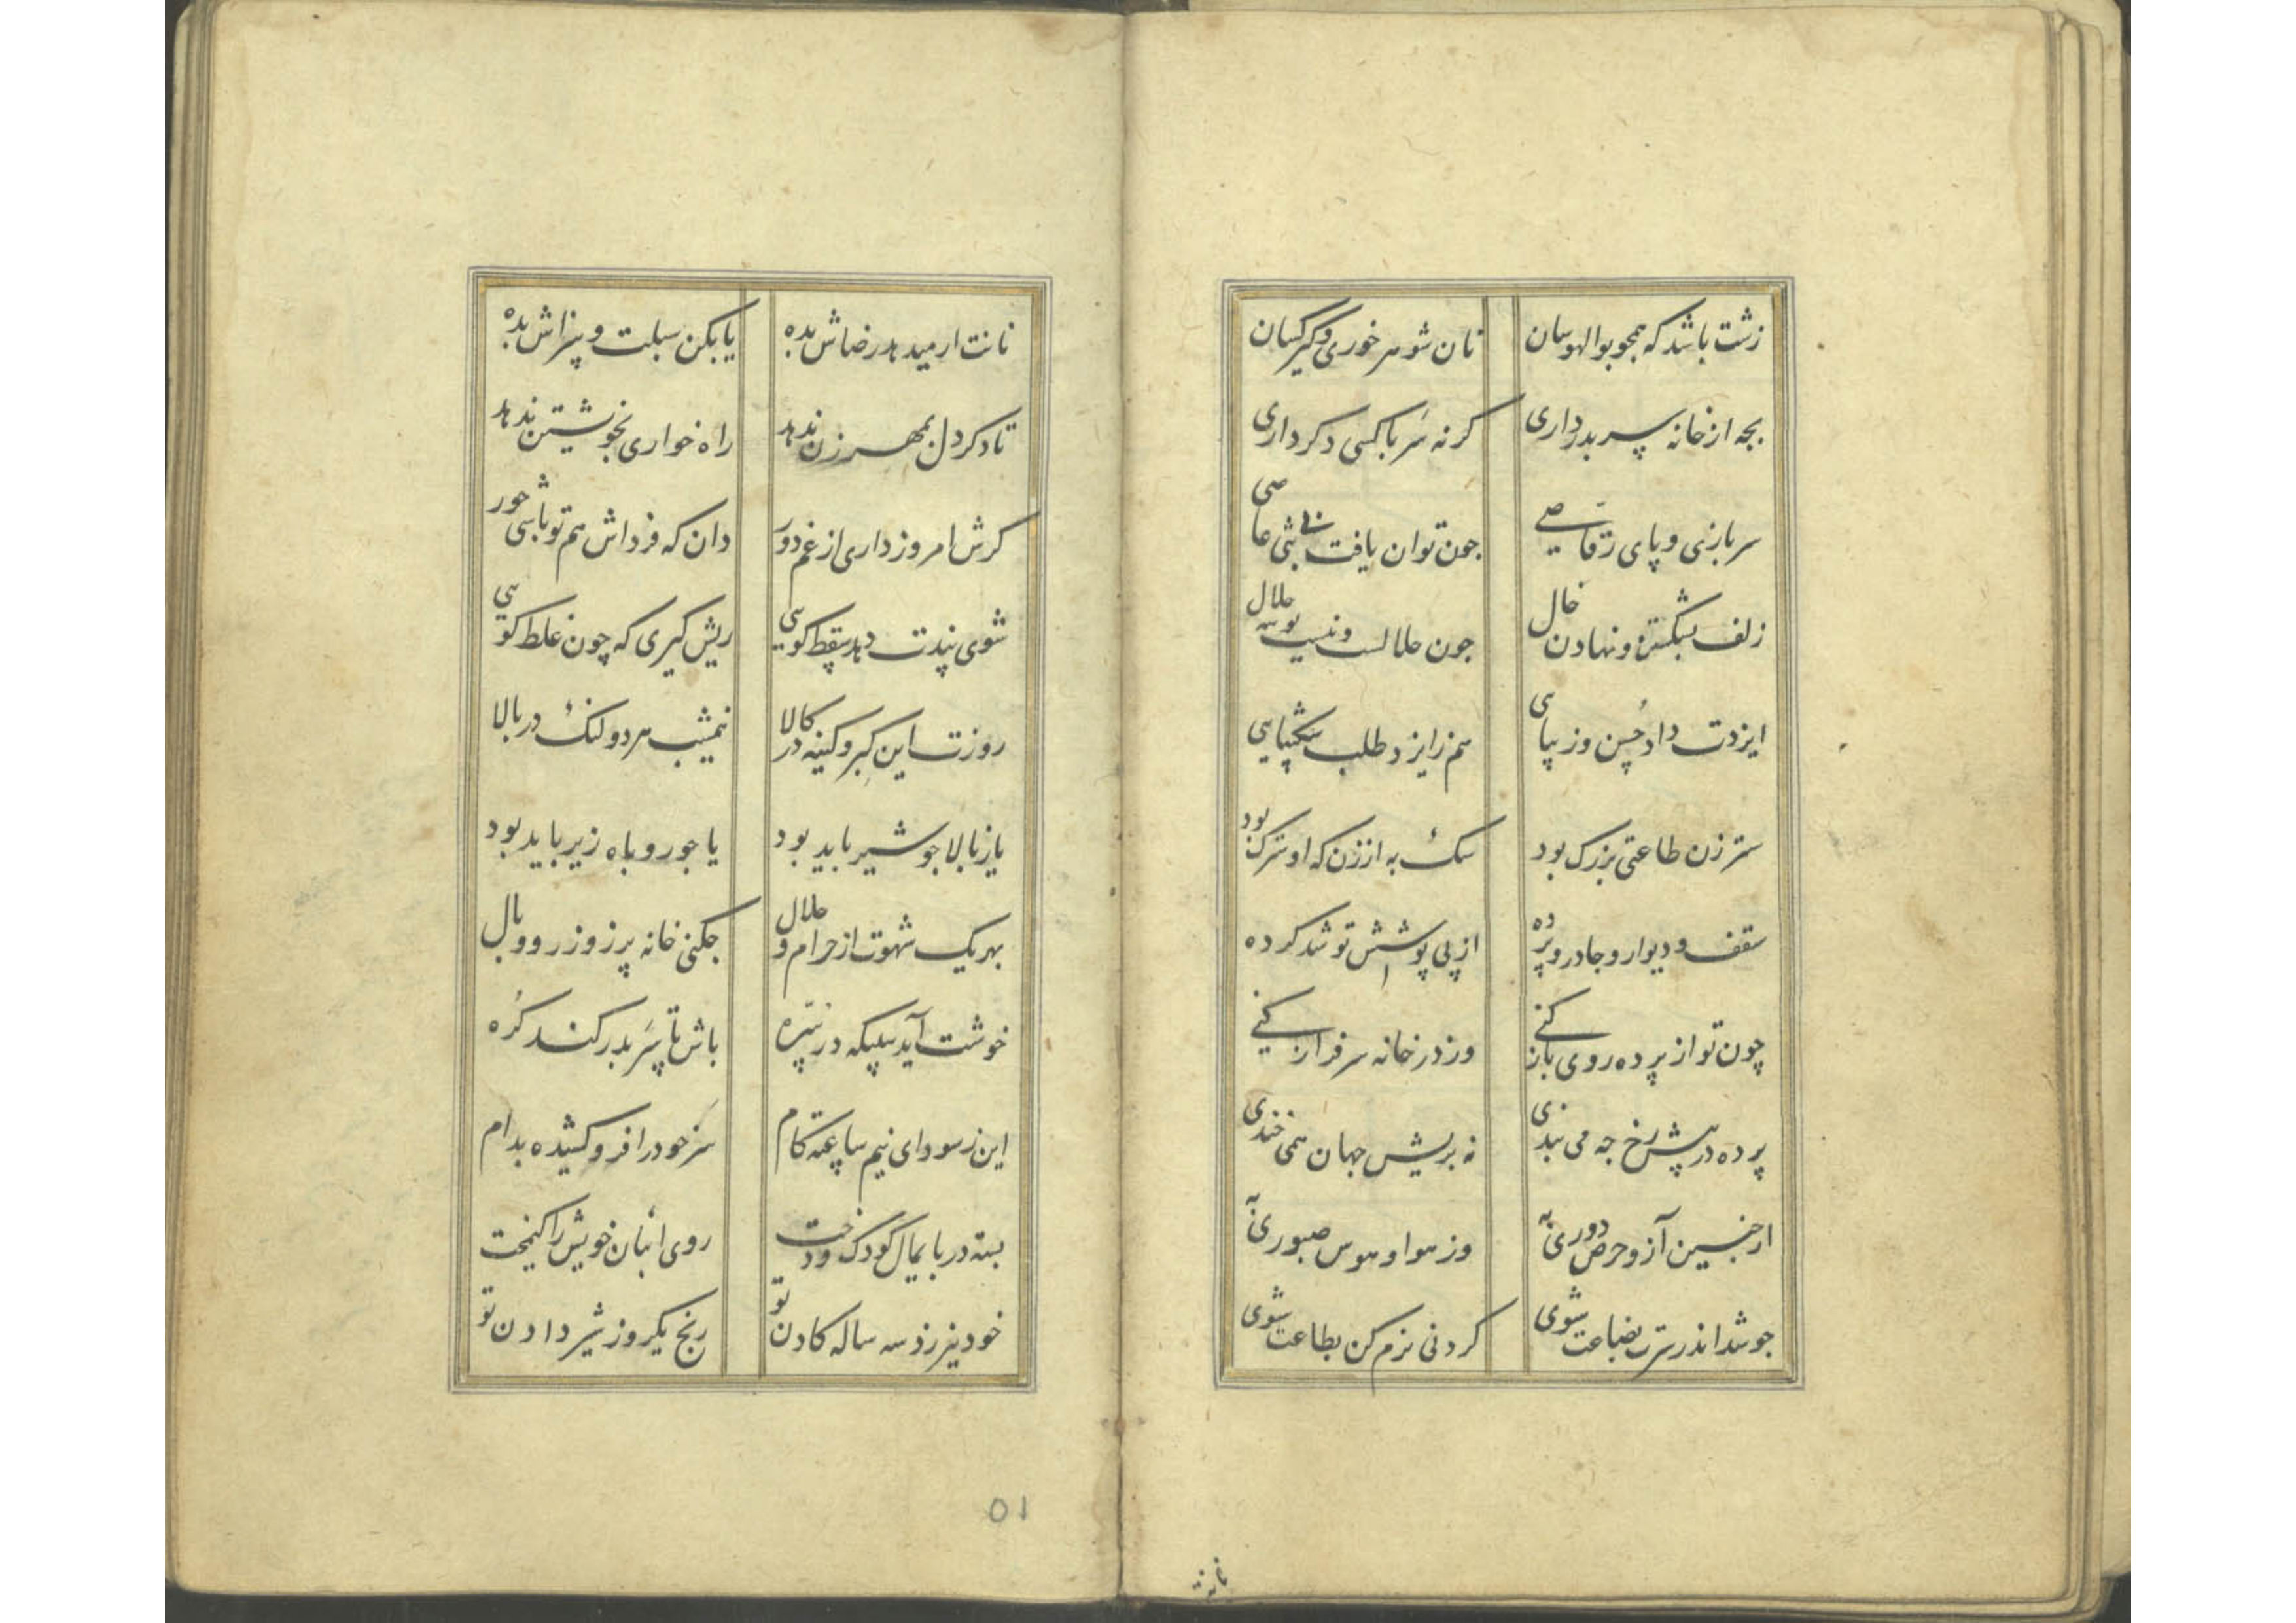 زشت باشد که همچو بوالهوسان نان شوهر خوری و گیر کسان
بجه از خانه سر بدر داری کرنه سر با کسی دکر داری
سر بازی و پای رقاصی چون توان یافت عاصی
زلف بشکستن و نهادن خال جون حلالست و نیست بوسه حلال
ایزدت داد حسن و زیبایی هم ز ایزد طلب شکیبایی
ستر زن طاعتی بزرک بود سک به از زن که او سترک بود
سقف و دیوار و جادر و پرده از پی پوشش تو شد کرده
چون تو از پرده روی باز کنی وز در خانه سر فراز کنی
پرده در پیش رخ جه می بندی نه بریش جهان همی خندی
از جنین آز و حرص دوری به وز هوا و هوس صبوری به
جو شد اندر سرت بضاعت شوی کردنی نرم کن بطاعت شوی
نانت ار میدهد رضاش بده یا بکن سبلت و سزاش بده
تا دکر دل بمهر زن ندهد راه خواری بخویشتن ندهد
کرش امروز داری از غم دور دان که فرداش هم تو باشی حور
شوی پندت دهد سقط کویی ریش کیری که چون غلط کویی
روزت این کبر و کینه در کالا نیمشب هر دو لنک در بالا
یا ز بالا جو شیر باید بود یا جو روباه زیر باید بود
بهر یک شهوت از حرام و حلال جکنی خانه پر ز وزر و وبال
خوشت آید سلیکه در باش تا سر بدر کند کره
این ز سودای نیم کام سر خود را فرو کشیده بدام
بسته در با یمال کودک و رخت روی انبان خویش را کیمخت
خود نیرزد سه ساله کادن تو رنج یکروز شیر دادن تو
۵۱
نانت